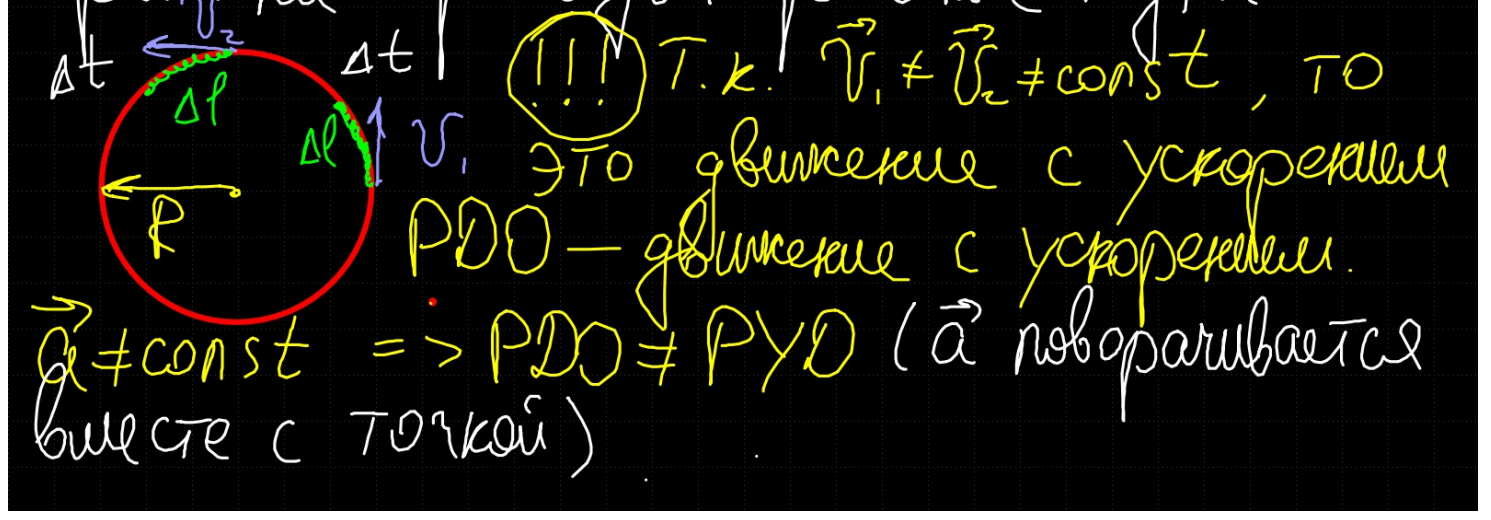 V₂
Δt Δl Δt Δl V₁ R
!!! Т.к. V⃗₁ ≠ V⃗₂ ≠ const, то
это движение с ускорением
РДО — движение с ускорением.
a⃗ ≠ const => РДО ≠ РУД (a⃗ поворачивается
вместе с точкой)